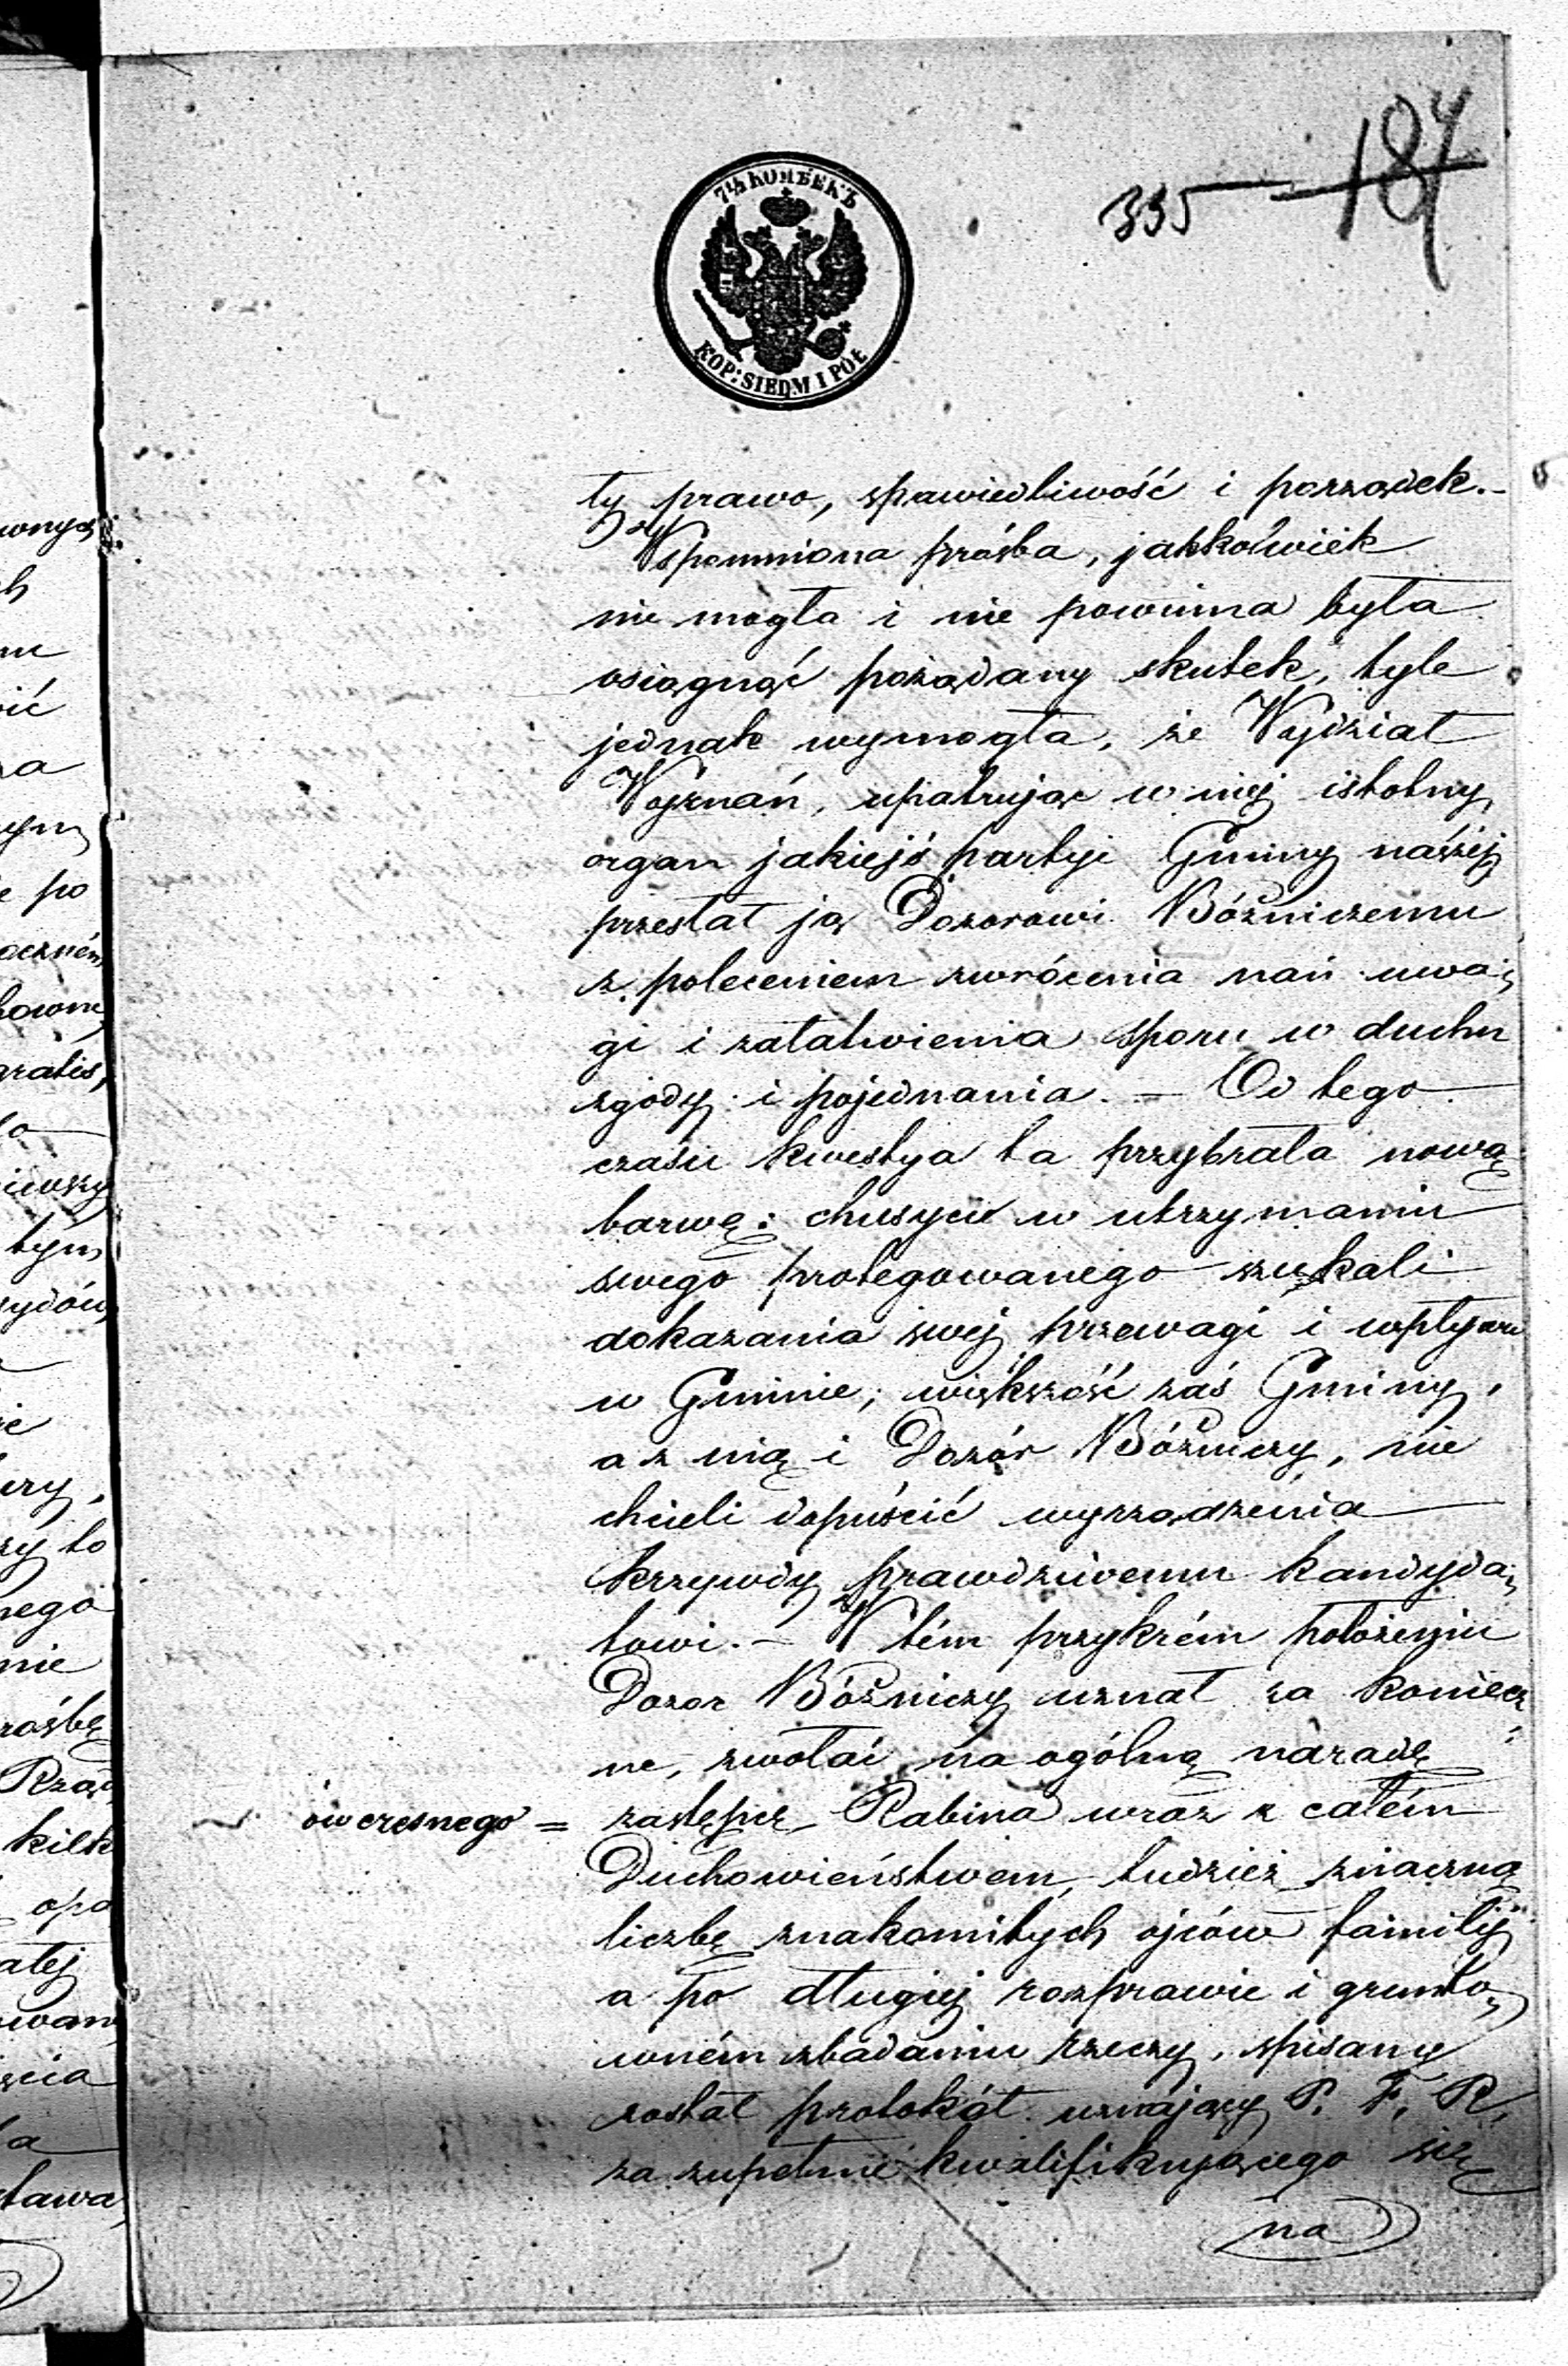 335 187
7½ КОПѢЕКЪ
KOP: SIEDM I PÓŁ
ty prawo, sprawiedliwość i porządek.-
Wspomniona prośba, jakkolwiek
nie mogła i nie powinna była
osiągnąć pożądany skutek, tyle
jednak wymogła, że Wydział
Wyznań, upatrując w niej istotny
organ jakiejś partyi Gminy naszéj
przesłał ją Dozorowi Bóżniczemu
z poleceniem zwrócenia nań uwa-
gi i załatwienia sporu w duchu
zgody i pojednania. – Od tego
czasu kwestya ta przybrała nową
barwę: chusyci w utrzymaniu
swego protegowanego szukali
dokazania swej przewagi i wpływu
w Gminie; większość zaś Gminy,
a z nią i Dozór Bóżniczy, nie
chcieli dopuścić wyrządzenia
krzywdy prawdziwemu kandyda-
towi. – W tém przykrém położeniu
Dozor Bóżniczy uznał za koniecz
ne, zwołać na ogólną naradę
ówczesnego = zastępcę Rabina wraz z całém
Duchowieństwem, tudzież znaczną
liczbę znakomitych ojców familij
a po długiej rozprawie i grunto-
wném zbadaniu rzeczy, spisany
został protokół uznający P. F. R.
za zupełnie kwalifikującego się
na
wnych
ch
mu
wić
za
po
gratis,
tym
żydów
ry,
to
nego
nie
rośbę
Rząd
kilk
opa
ałej
wan
ścia
ła
stawa